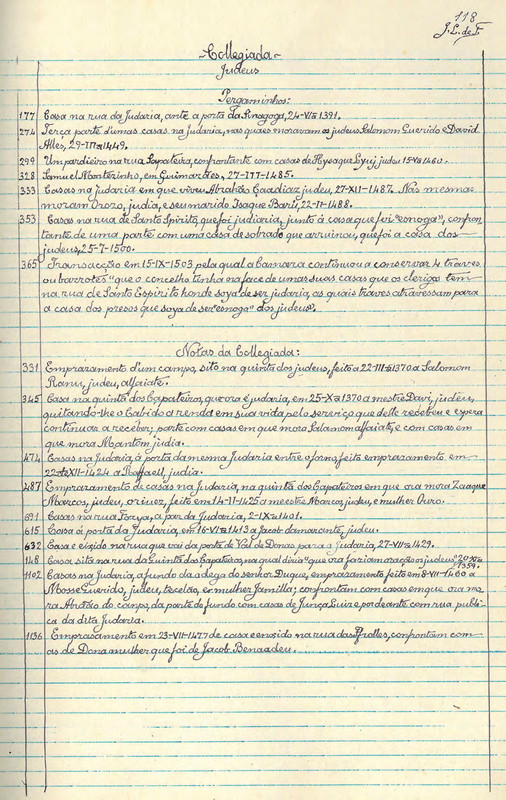 118
J.L. de F.
Collegiada
Judeus
Pergaminhos:
177 Casa na rua da Judaria, ante a porta da Sinagoga, 24-VI-1391.
274 Terça parte d'umas casas, na Judaria, nas quaes moravam os judeus Salomom Querido e David
Alles, 29-III-1449.
299 Um pardieiro na rua Sapateira, confrontante com casas de Hysaque Lyuj judeu 15-V-1460.
328 Samuel Montesinho, em Guimarães, 27-III-1485.
333 Casas na judaria em que viveu Abrahão Gaadiaz judeu, 27-XII-1487. Nas mesmas
moram Orozo, judia, e seu marido Isaque Barú, 22-II-1488.
353 Casas na rua de Santo Spirito, que foi judiaria, junto á casa que foi "esnoga", confron
tante de uma parte com uma casa de sobrado que arruinou, que foi a casa dos
judeus, 25-7-1500.
365 Transacção em 15-IX-1503 pela qual a camara continuou a conservar 4 traves
ou barrotes "que o concelho tinha na face de umas suas casas que os clerigos tem
na rua de Santo Espirito honde soya de ser judaria, as quais traves atravessam para
a casa dos presos que soya de ser esnoga" dos judeus".
Notas da Collegiada:
331 Emprazamento d'um campo, sito na quinta dos judeus, feito a 22-III-1370 a Salomom
judeu, alfaiate.
345 Casa na quinta dos Çapateiros, que ora é judaria, em 25-X-1370 a mestre Davi, judeu,
quitando-lhe o Cabido a renda em sua vida pelo serviço que delle recebeu e espera
continuar a receber; parte com casas em que mora Salamom alfaiate, e com casas em
que mora judia.
474 Casas na Judaria, á porta da mesma Judaria entre o forno, feito emprazamento em
22-XII-1424 a Raffaell, judia.
487 Emprazamento de casas na Judaria, na quinta dos Çapateiros em que ora mora Zaaque
Marcos, judeu, orivez, feito em 14-II-1425 a meestre Marcos judeu, e mulher Ouro.
691 Casas na rua Forja, a par da Judaria, 2-IX-1401.
615 Casa á porta da Judaria, em 16-VI-1413 a Jacob damarante, judeu.
632 Casa e eixido na rua que vai da porta de Val de Donas para a Judaria, 27-VII-1429.
148 Casa, sita na rua da Quinta dos Çapateiros, na qual diria "que ora faziam oração os judeus" 20-XI-
1359.
1102 Casas na Judaria, a fundo da adega do senhor Duque, emprazamento feito em 8-VII-1460 a
Mosse Querido, judeu, tecelão, e mulher Jamilla; confrontam com casas em que ora mo
ra Abraão do campo, da parte de fundo com casas de Junça Luiz e por deante com rua publi
ca da dita Judaria.
1136 Emprasamento em 23-VII-1477 de casa e enxido na rua das confrontam com
as de Dona mulher que foi de Jacob Benaadeu.